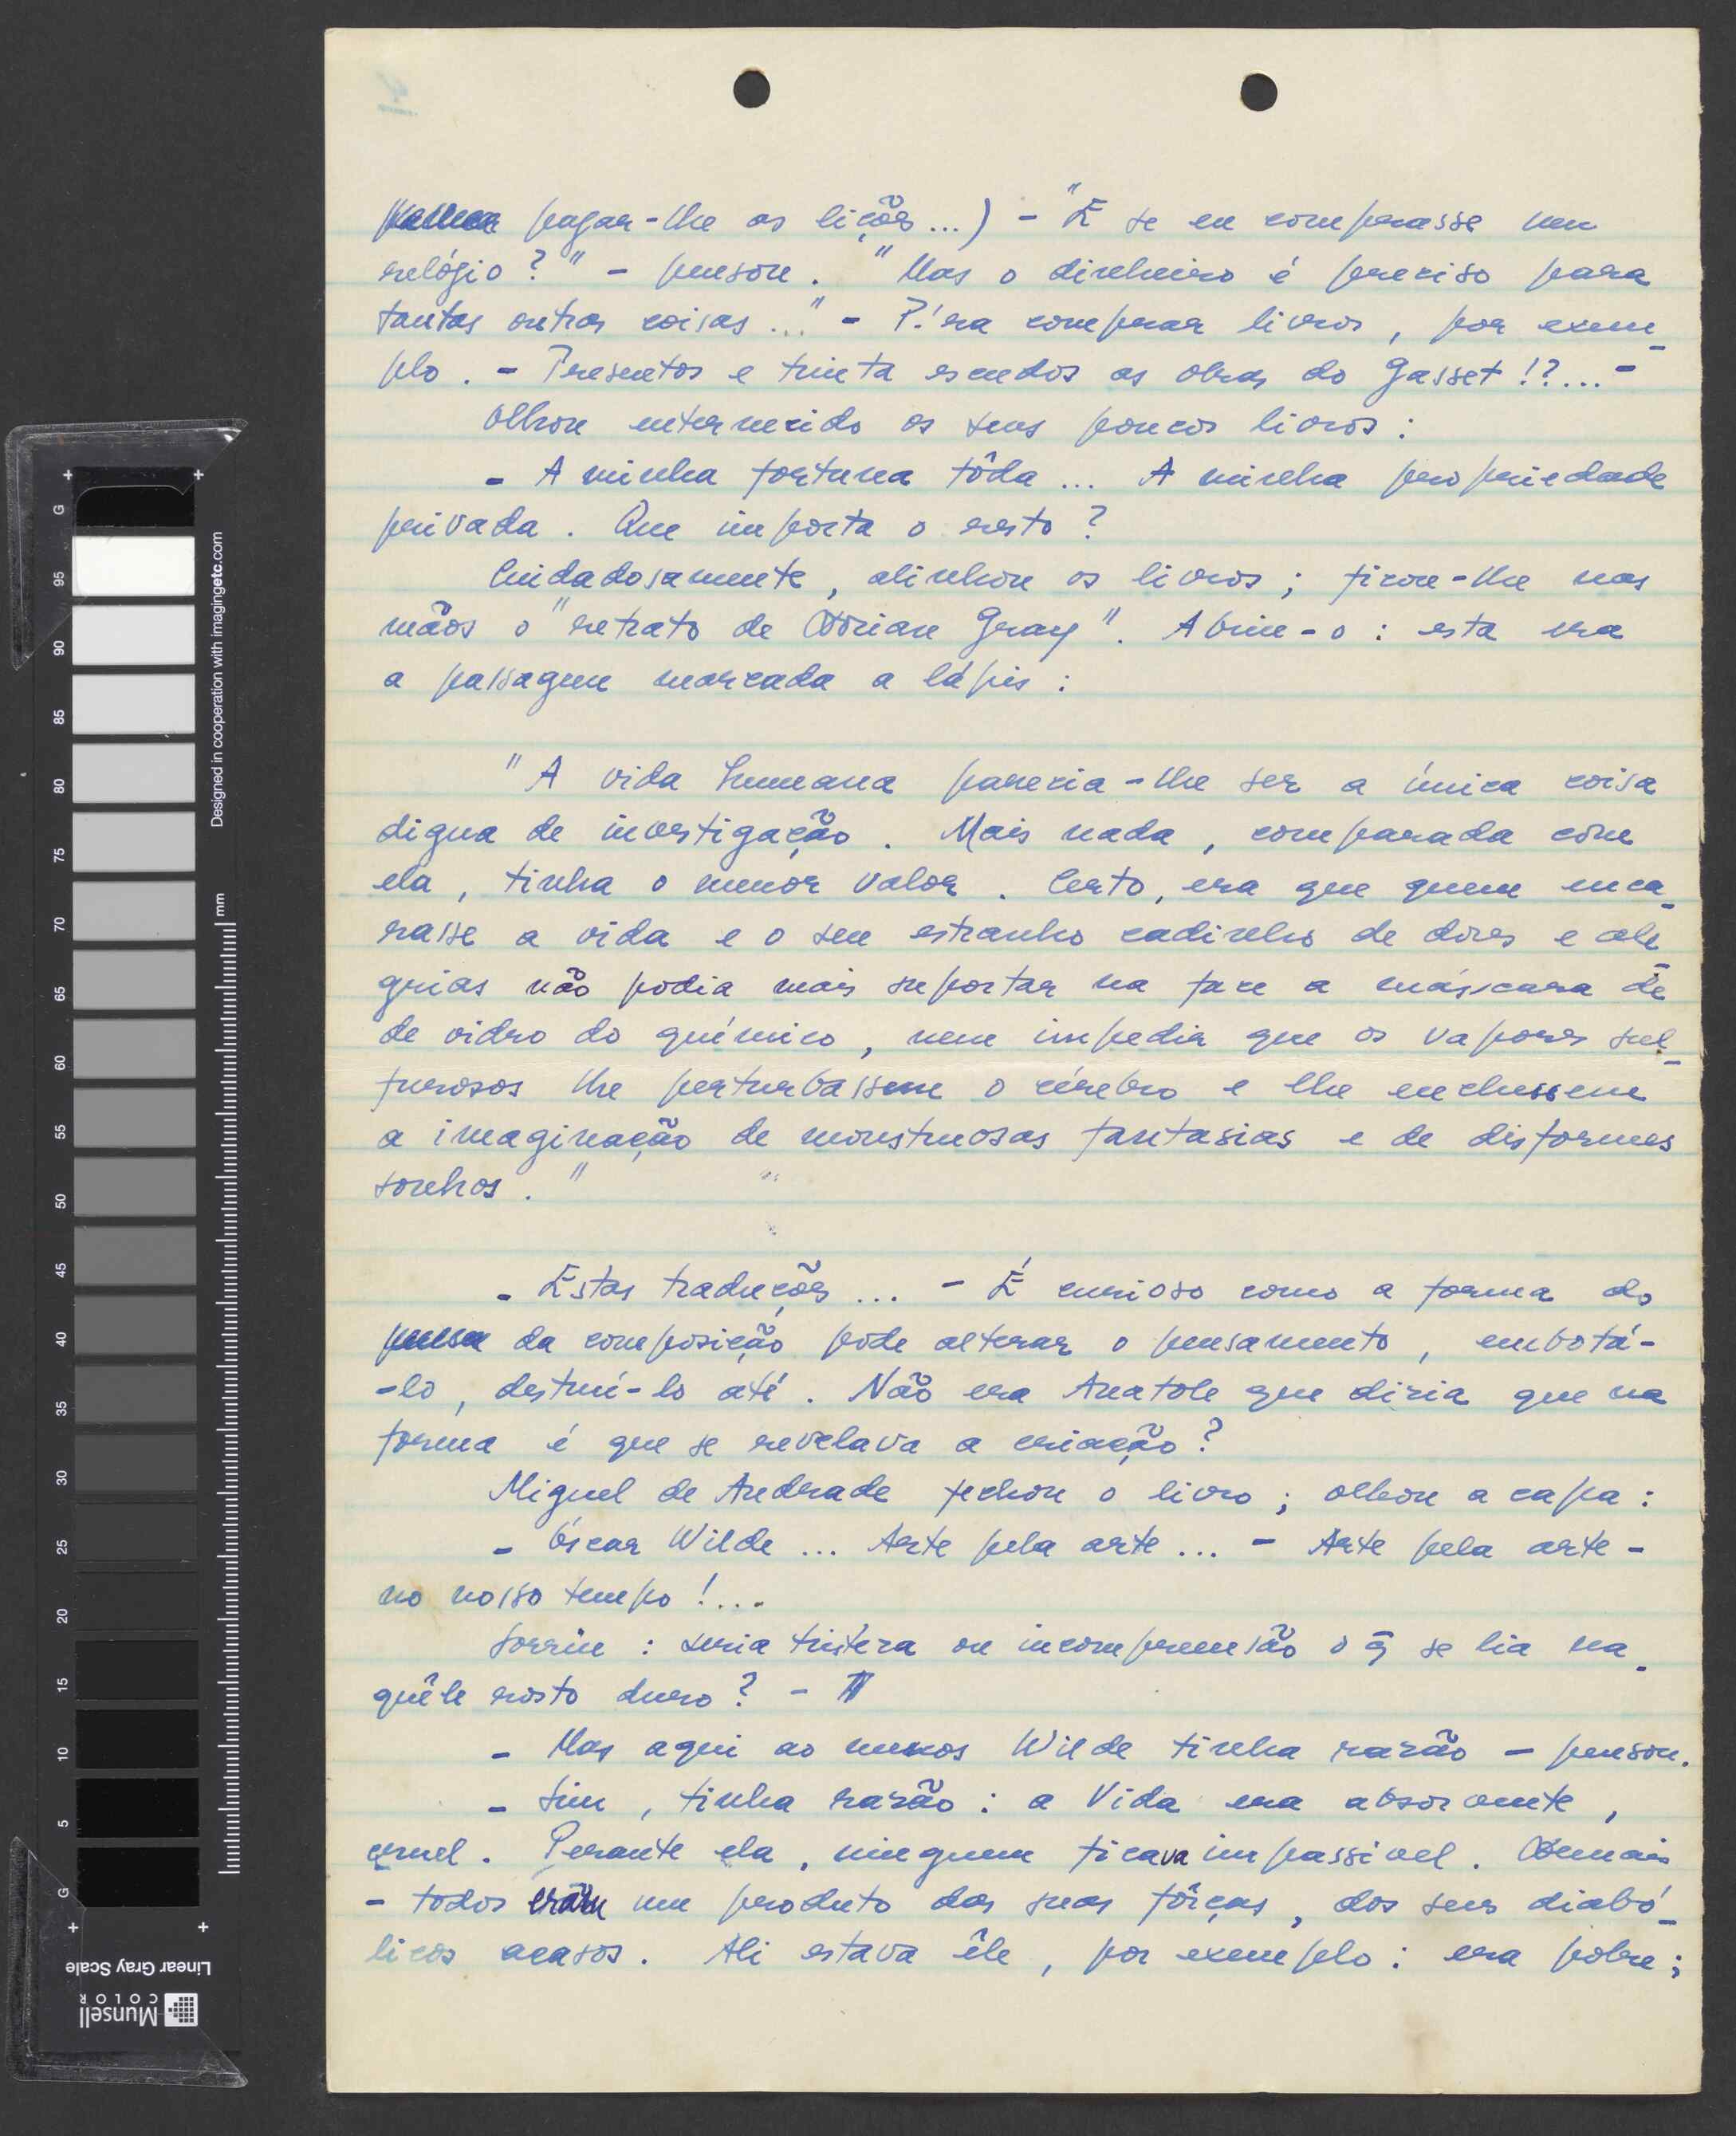 pagar-lhe as lições...) - "E se eu comprasse um
relógio?" - pensou. "Mas o dinheiro é preciso para
tantas outras coisas..." - P'ra comprar livros, por exem-
plo. - Tresentos e trinta escudos as obras do Gasset!?...-
Olhou enternecido os seus poucos livros:
- A minha fortuna tôda... A minha propriedade
privada. Que importa o resto?
Cuidadosamente, alinhou os livros; ficou-lhe nas
mãos o "retrato de Dorian Gray". Abriu-o: esta era
a passagem marcada a lápis:
"A vida humana parecia-lhe ser a única coisa
digna de investigação. Mais nada, comparada com
ela, tinha o menor valor. Certo, era que quem enca-
rasse a vida e o seu estranho cadinho de dores e ale
grias não podia mais suportar na face a máscara de
de vidro do químico, nem impedir que os vapores sul-
furosos lhe perturbassem o cérebro e lhe enchessem
a imaginação de monstruosas fantasias e de disformes
sonhos."
- Estas traduções... - É curioso como a forma do
da composição pode alterar o pensamento, embotá-
-lo, destruí-lo até. Não era Anatole que dizia que na
forma é que se revelava a criação?
Miguel de Andrade fechou o livro; olhou a capa:
- Óscar Wilde... Arte pela arte... - Arte pela arte -
no nosso tempo!...
Sorriu: seria tristeza ou incompreensão o q̃ se lia na-
quêle rosto duro? -
- Mas aqui ao menos Wilde tinha razão - pensou.
- Sim, tinha razão: a Vida era absorvente,
cruel. Perante ela, ninguem ficava impassivel. Demais
- todos eram um produto das suas fôrças, dos seus diabó-
licos acasos. Ali estava êle, por exemplo: era pobre;
Designed in cooperation with imagingetc.com
mm
+ G 95 90 85 80 75 70 65 60 55 50 45 40 35 30 25 20 15 10 5 G +
Linear Gray Scale
Munsell
COLOR